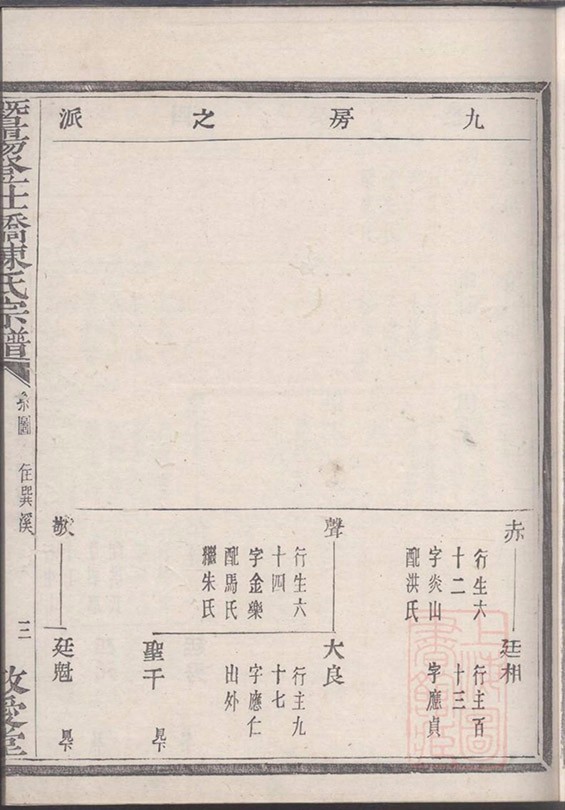 九房之派
赤
行生六
十二
字炎山
配洪氏
廷相
行主百
十三
字應貞
聲
行生六
十四
字金樂
配馬氏
繼朱氏
大良
行主九
十七
字應仁
山外
聖千
敬
廷魁
陳氏宗譜
系圖
住巽溪
三
敬愛堂